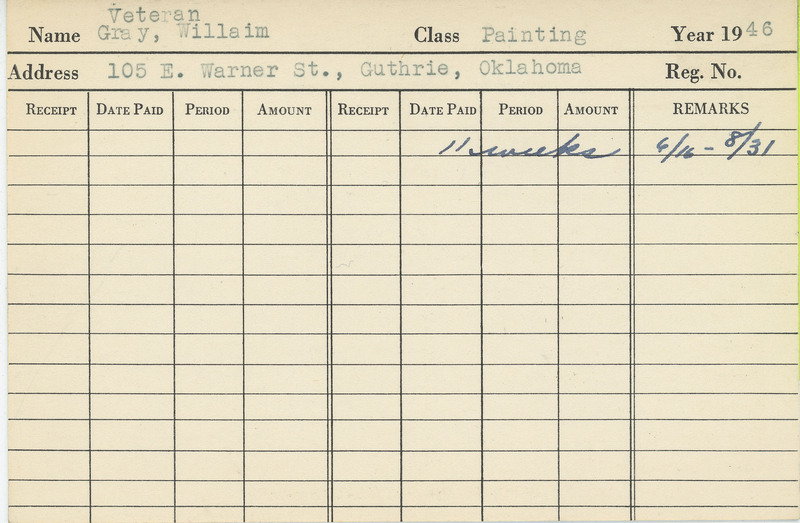 Veteran
Name Gray, Willaim Class Painting Year 1946
Address 105 E. Warner St., Guthrie, Oklahoma Reg. No.
RECEIPT DATE PAID PERIOD AMOUNT RECEIPT DATE PAID PERIOD AMOUNT REMARKS
11 weeks 6/16 - 8/31